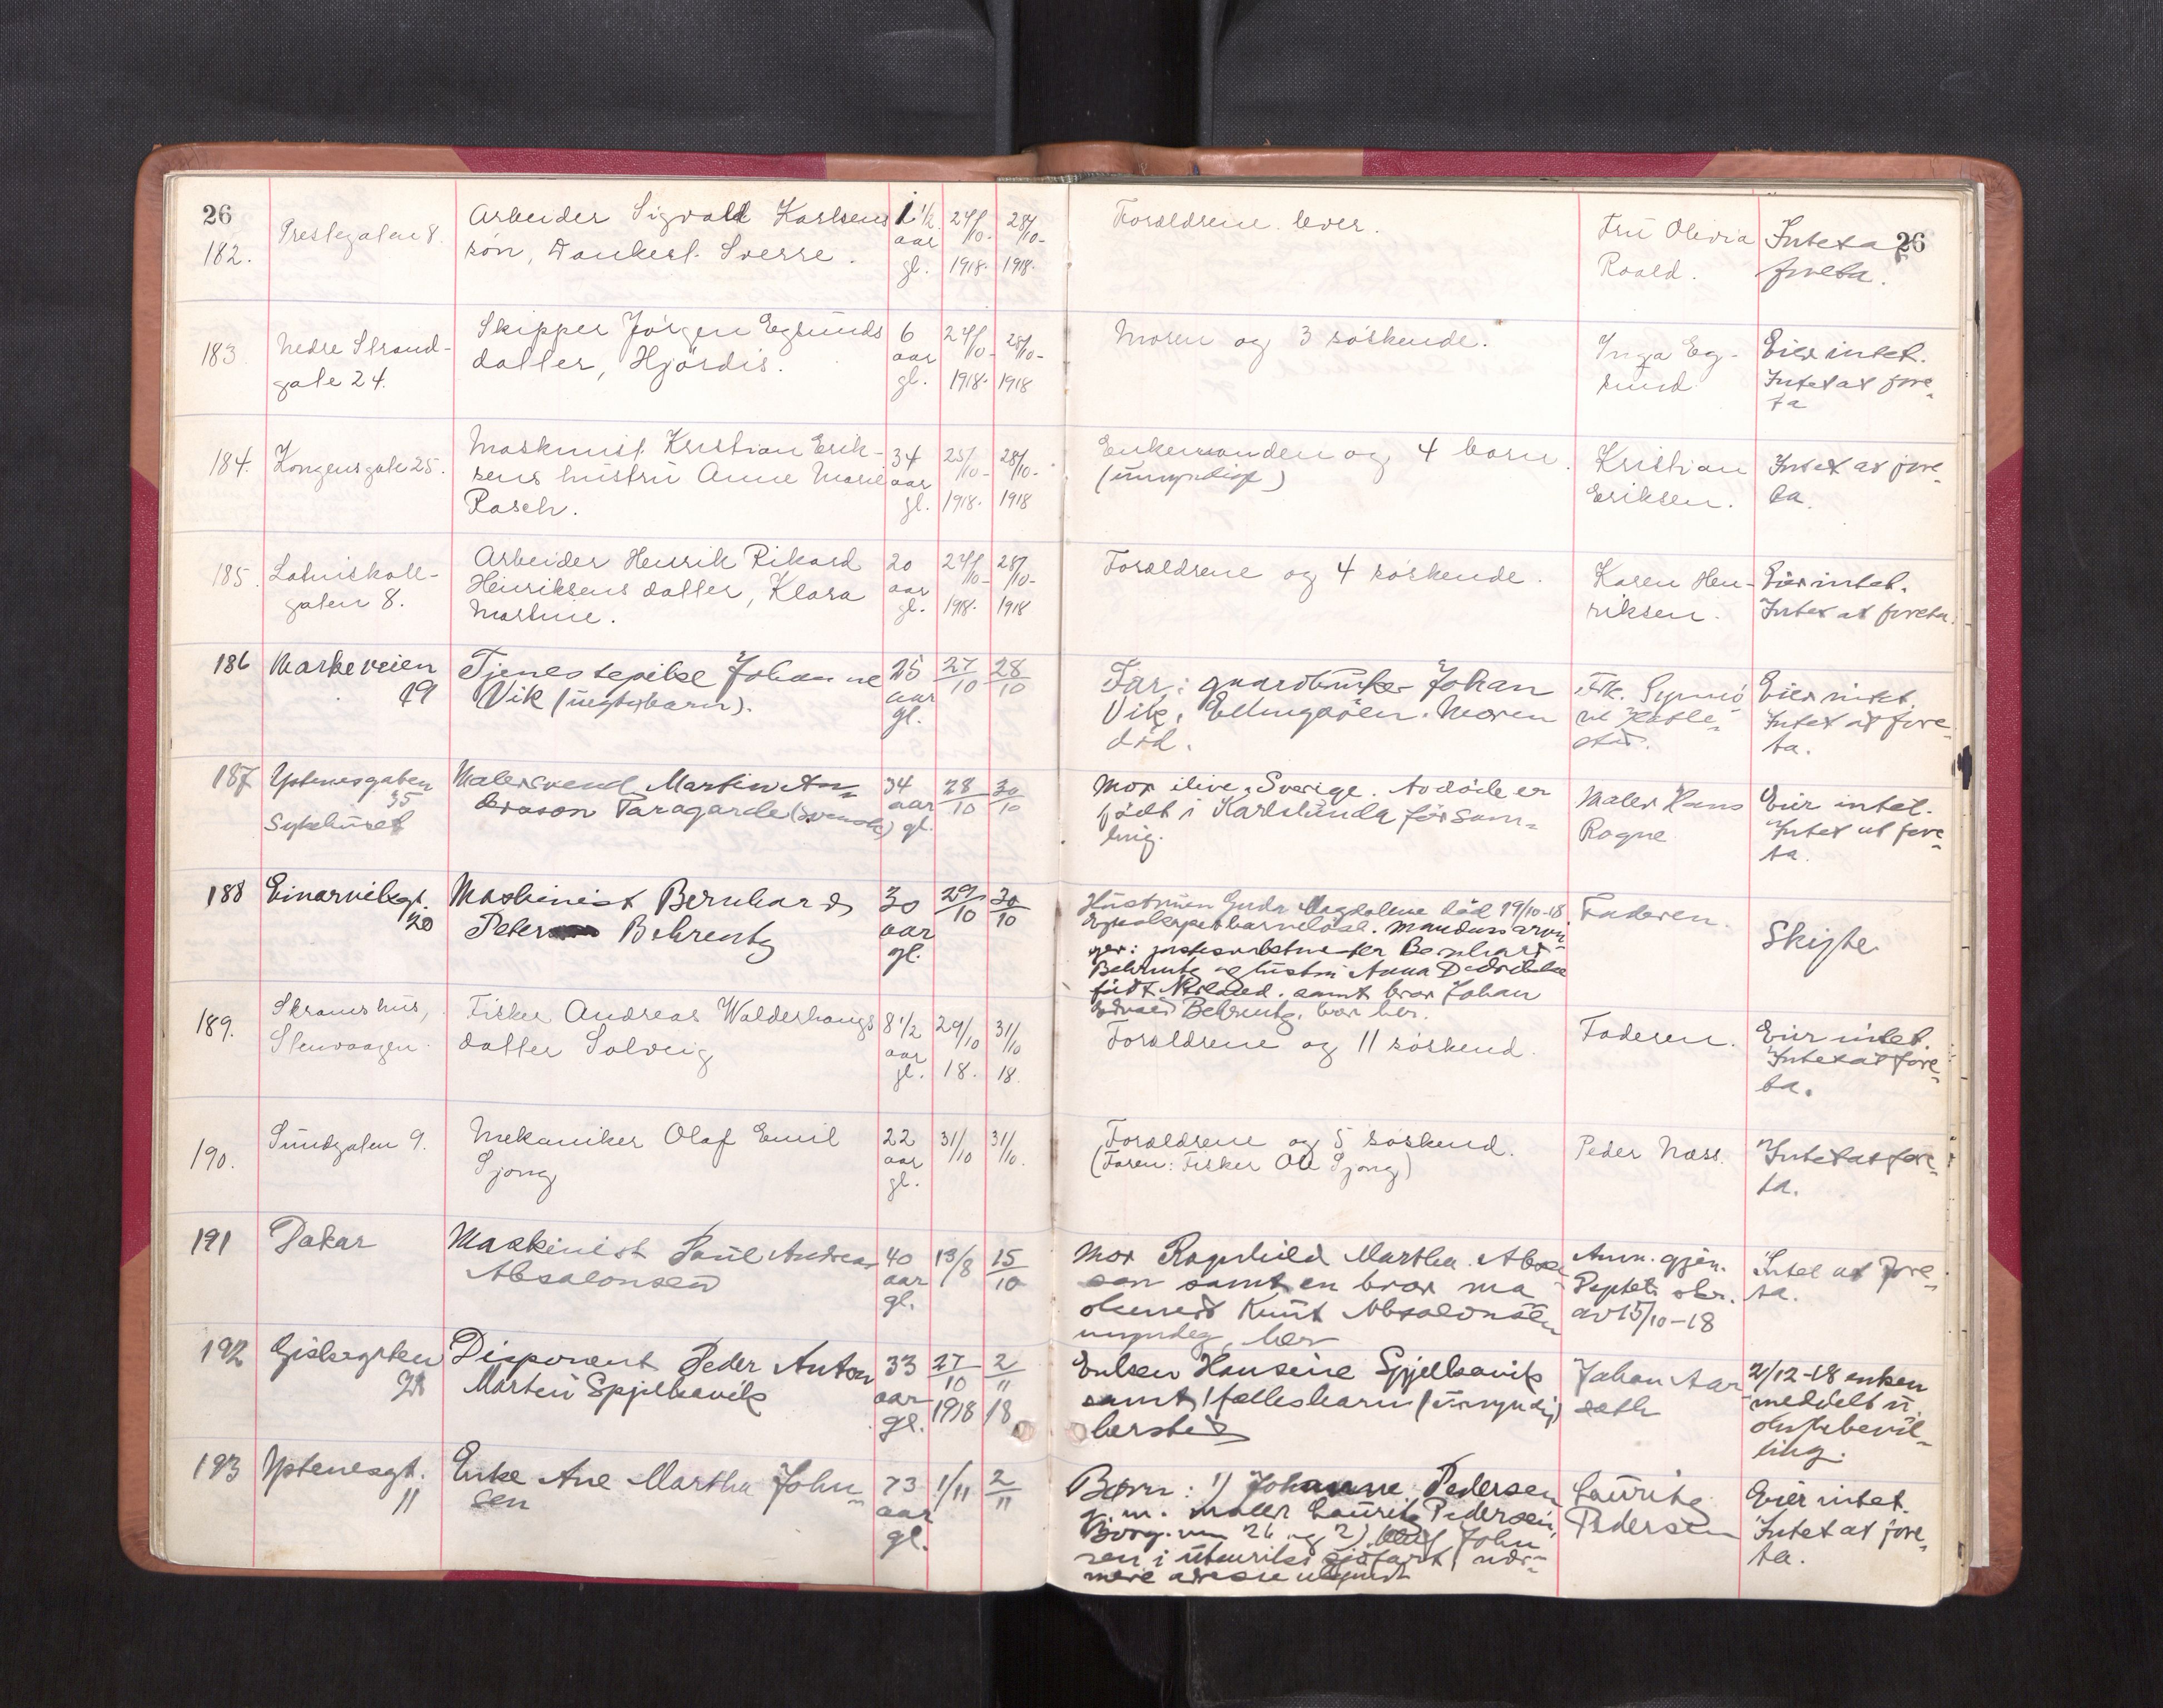 26
26
182. Prestegaten 8. Arbeider Sigvald Karlsens 1 1/2 24/10- 28/10- Forældrene lever. Fru Olivia Intet a
søn, Dankert Sverre. aar gl. 1918. 1918. Roald. foreta.
183 Nedre Strand- Skipper Jørgen Egsunds 6 24/10- 28/10- Moren og 3 søskende. Inga Eg- Eier intet.
gate 24. datter, Hjørdis. aar gl. 1918. 1918 sund Intet at fore-
ta
184. Kongensgate 25. Maskinist Kristian Erik- 34 25/10- 28/10- Enkemanden og 4 barn. Kristian Intet at fore-
sens hustru Anne Marie aar (umyndige) Eriksen. ta.
Rasch. gl. 1918. 1918
185. Latinskole- Arbeider Henrik Rikard 20 24/10- 28/10- Forældrene og 4 søskende. Karen Hen- Eier intet.
gaten 8. Henriksens datter, Klara aar riksen. Intet at foreta.
Martine. gl. 1918. 1918
186 Markeveien Tjenestepike Johanne 25 27/10 28/10 Far: gaardbruker Johan Frk. Synnø Eier intet.
19 Vik (uegte barn). aar Vik, Ellingsøen. Moren ve Hatle- Intet at fore-
gl. død. stad. ta.
187 Ystenesgaten Malersvend Martin An- 34 28/10 30/10 Mor ilive, Sverige. Avdøde er Maler Hans Eier intet.
35 dersson Taragarde (svensk) aar gl. født i Karlslunda försam- Rogne Intet at fore-
Sykehuset ling. ta.
188 Einarviksgt. Maskinist Bernhard 30 29/10 30/10 Hustruen Gudr Magdalene død 19/10-18 Faderen. Skifte
20 Peter Behrentz aar Egteskapet barnløst. Mandens arvin-
gl. ger: Bernhard
Behrentz og hustru Anna
født samt bror Johan
Edvard Behrentz, bor her.
189. Skramshus, Fisker Andreas Walderhaugs 8 1/2 29/10 31/10 Forældrene og 11 søskend. Faderen. Eier intet.
Stenvaagen. datter Solveig aar gl. 18. 18. Intet at fore-
ta.
190. Sundgaten 9. Mekaniker Olaf Emil 22 31/10 31/10. Forældrene og 5 søskend. Peder Næss. Intet at fore-
Sjong aar gl. (Faren: Fisker Ole Sjong) ta.
191 Dakar Maskinist Paul Andreas 40 13/8 15/10 Mor Ragnhild Martha Absa Anm. gjen. Intet at fore-
Absalonsen aar sen samt en bror ma skr. ta.
gl. Knut Absalonsen av 15/10-18
umyndig, her
192 Gislegaten Disponent Peder Anton 33 27/10 2/11 Enken Hansine Spjelkavik Johan Aar- 2/12-18 enken
21 Martin Spjelkavik aar 1918 18 samt 1 fellesbarn (umyndig) seth meddelt u.
gl. hersteds skiftebevil-
ling.
193 Ystenesgt. Enke Ane Martha John- 73 1/11 2/11 Børn: 1) Johanne Pedersen Lauritz Eier intet.
11 sen aar g. m. maler Lauritz Pedersen, Pedersen Intet at fore-
gl. Borg. vei 26 og 2) Olaf John ta.
sen i utenriks sjøfart, nær-
mere adresse ukjendt